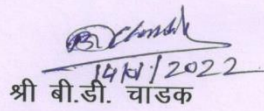 14/01/2022
श्री बी.डी. चाडक